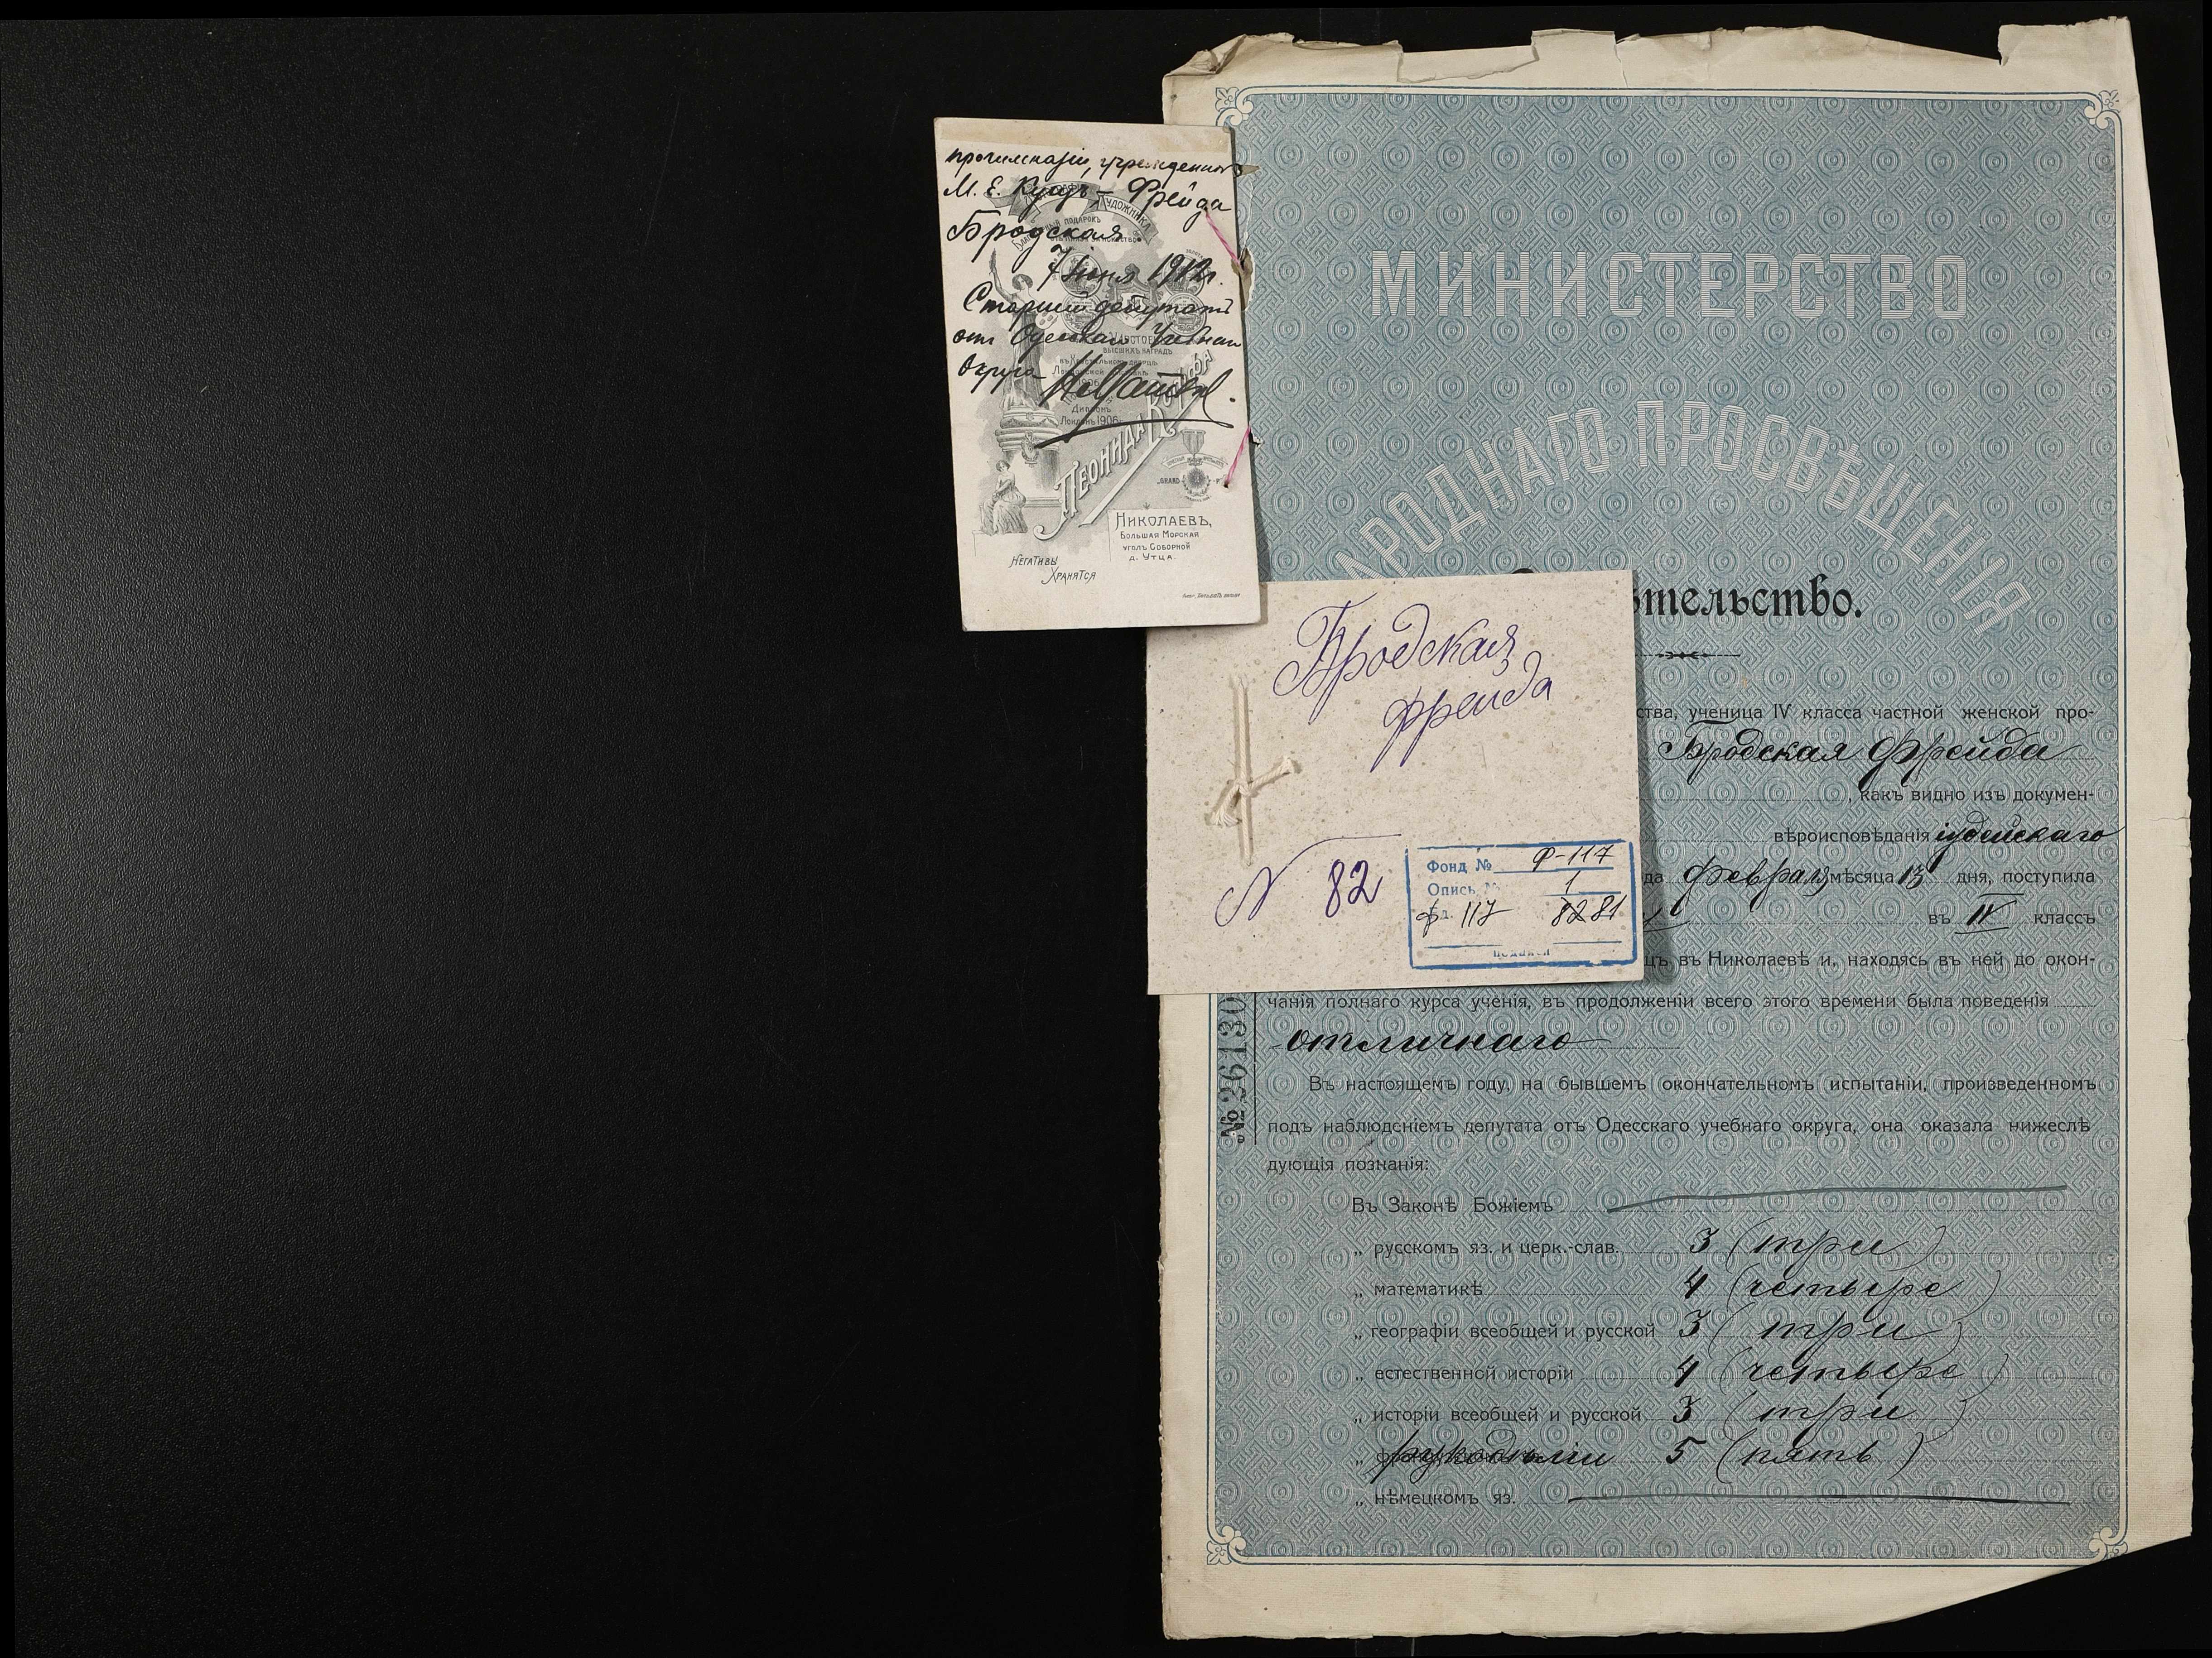 прогимназіи, учрежденной
М. Е. Куцъ – Фрейда
Бродская
7 іюня 1912г.
Старшій депутатъ
от Одесскаго Учебнаго
Округа
ХУДОЖНИКА
ПОДАРОКЪ
ВЫСШИХЪ НАГРАДЪ
Дипломъ
Лондонъ 1906
Леонида
GRAND
НИКОЛАЕВЪ,
Большая Морская
уголъ Соборной
д. Утца.
Негативы
Хранятся
МИНИСТЕРСТВО
АРОДНАГО ПРОСВѢЩЕНІЯ
ѣтельство.
Бродская
Фреида
N 82
Фонд № Ф-117
Опись № 1
ф. 117 82 81
ства, ученица IV класса частной женской про-
Бродская Фрейда
, какъ видно изъ докумен-
вѣроисповѣданія іудейскаго
да Февраля мѣсяца 13 дня, поступила
въ IV классъ
цъ въ Николаевѣ и, находясь въ ней до окон-
чанія полнаго курса ученія, въ продолженіи всего этого времени была поведенія
отличнаго
№ 26130
Въ настоящемъ году, на бывшемъ окончательномъ испытаніи, произведенномъ
подъ наблюденіемъ депутата отъ Одесскаго учебнаго округа, она оказала нижеслѣ
дующія познанія:
Въ Законѣ Божіемъ
„ русскомъ яз. и церк.-слав. 3 (три)
„ математикѣ 4 (четыре)
„ географіи всеобщей и русской 3 (три)
„ естественной исторіи 4 (четыре)
„ исторіи всеобщей и русской 3 (три)
„ рукодѣліи 5 (пять)
„ нѣмецкомъ яз.